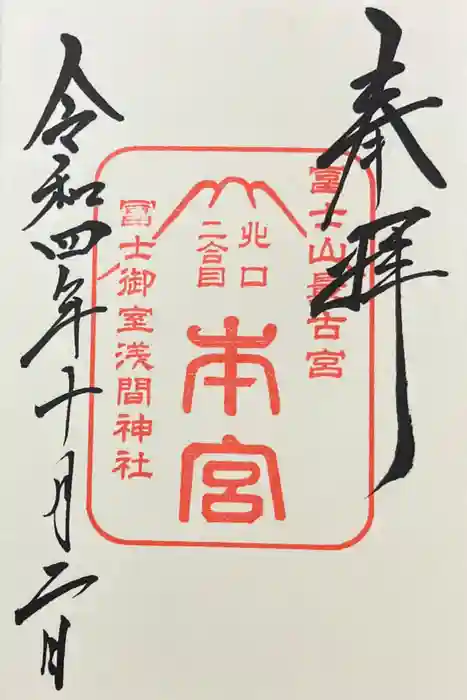 奉拝
冨士山最古宮
北口
二合目
本宮
冨士御室浅間神社
令和四年十月二日